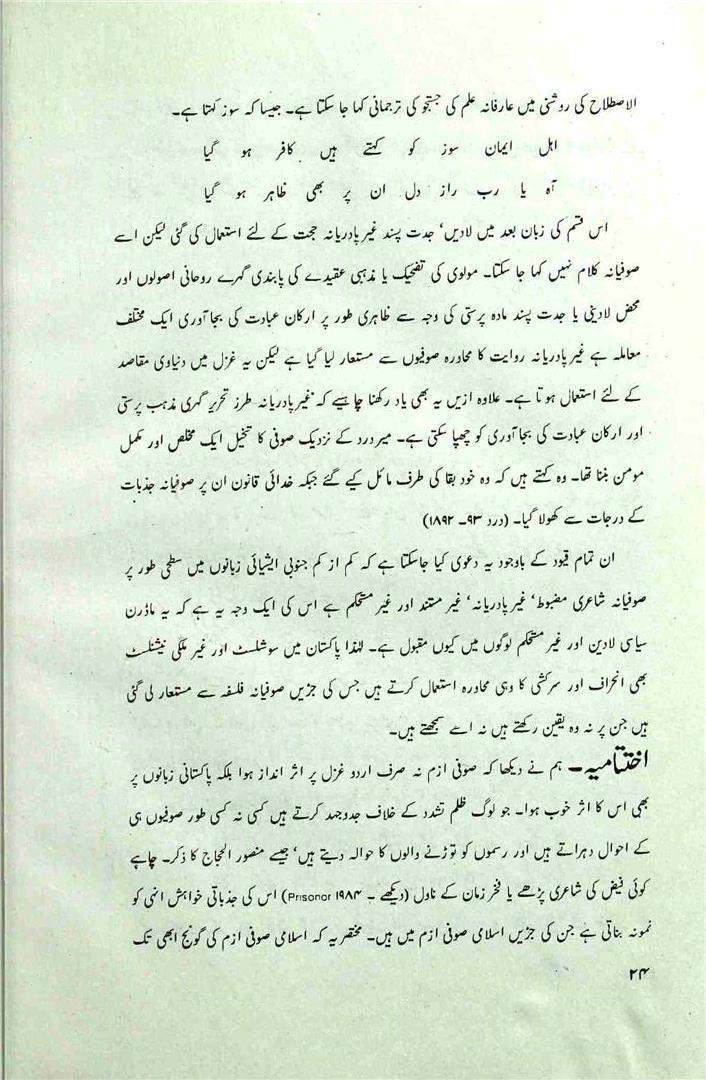 الاصطلاح کی روشنی میں عارفانہ علم کی جستجو کی ترجمانی کہا جا سکتا ہے۔ جیسا کہ سوز کہتا ہے۔
اہل ایمان سوز کو کہتے ہیں کافر ہو گیا
آہ یا رب راز دل ان پر بھی ظاہر ہو گیا
اس قسم کی زبان بعد میں لادیں، جدت پسند غیر پادریانہ حجت کے لئے استعمال کی گئی لیکن اسے
صوفیانہ کلام نہیں کہا جا سکتا۔ مولوی کی تضحیک یا مذہبی عقیدے کی پابندی گہرے روحانی اصولوں اور
محض لادینی یا جدت پسند مادہ پرستی کی وجہ سے ظاہری طور پر ارکان عبادت کی بجا آوری ایک مختلف
معاملہ ہے غیر پادریانہ روایت کا محاورہ صوفیوں سے مستعار لیا گیا ہے لیکن یہ غزل میں دنیاوی مقاصد
کے لئے استعمال ہوتا ہے۔ علاوہ ازیں یہ بھی یاد رکھنا چاہیے کہ غیر پادریانہ طرز تحریر گہری مذہب پرستی
اور ارکان عبادت کی بجا آوری کو چھپا سکتی ہے۔ میر درد کے نزدیک صوفی کا تخیل ایک مخلص اور مکمل
مومن بننا تھا۔ وہ کہتے ہیں کہ وہ خود بقا کی طرف مائل کیے گئے جبکہ خدائی قانون ان پر صوفیانہ جذبات
کے درجات سے کھولا گیا۔ (درد ۹۳۔ ۱۸۹۲)
ان تمام قیود کے باوجود یہ دعوی کیا جاسکتا ہے کہ کم از کم جنوبی ایشیائی زبانوں میں سطحی طور پر
صوفیانہ شاعری مضبوط، غیر پادریانہ، غیر مستند اور غیر متحکم ہے اس کی ایک وجہ یہ ہے کہ یہ ماڈرن
سیاسی لادین اور غیر متحکم لوگوں میں کیوں مقبول ہے۔ لہٰذا پاکستان میں سوشلسٹ اور غیر ملکی نیشنلسٹ
بھی انحراف اور سرکشی کا وہی محاورہ استعمال کرتے ہیں جس کی جڑیں صوفیانہ فلسفہ سے مستعار لی گئی
ہیں جن پر نہ وہ یقین رکھتے ہیں نہ اسے سمجھتے ہیں۔
اختتامیہ۔ ہم نے دیکھا کہ صوفی ازم نہ صرف اردو غزل پر اثر انداز ہوا بلکہ پاکستانی زبانوں پر
بھی اس کا اثر خوب ہوا۔ جو لوگ ظلم تشدد کے خلاف جدوجہد کرتے ہیں کسی نہ کسی طور صوفیوں ہی
کے احوال دہراتے ہیں اور رسموں کو توڑنے والوں کا حوالہ دیتے ہیں، جیسے منصور الحجاج کا ذکر۔ چاہے
کوئی فیض کی شاعری پڑھے یا فخر زمان کے ناول (دیکھے ۔ Prisonor ۱۹۸۴) اس کی جذباتی خواہش انہی کو
نمونہ بناتی ہے جن کی جڑیں اسلامی صوفی ازم میں ہیں۔ مختصر یہ کہ اسلامی صوفی ازم کی گونج ابھی تک
۲۴